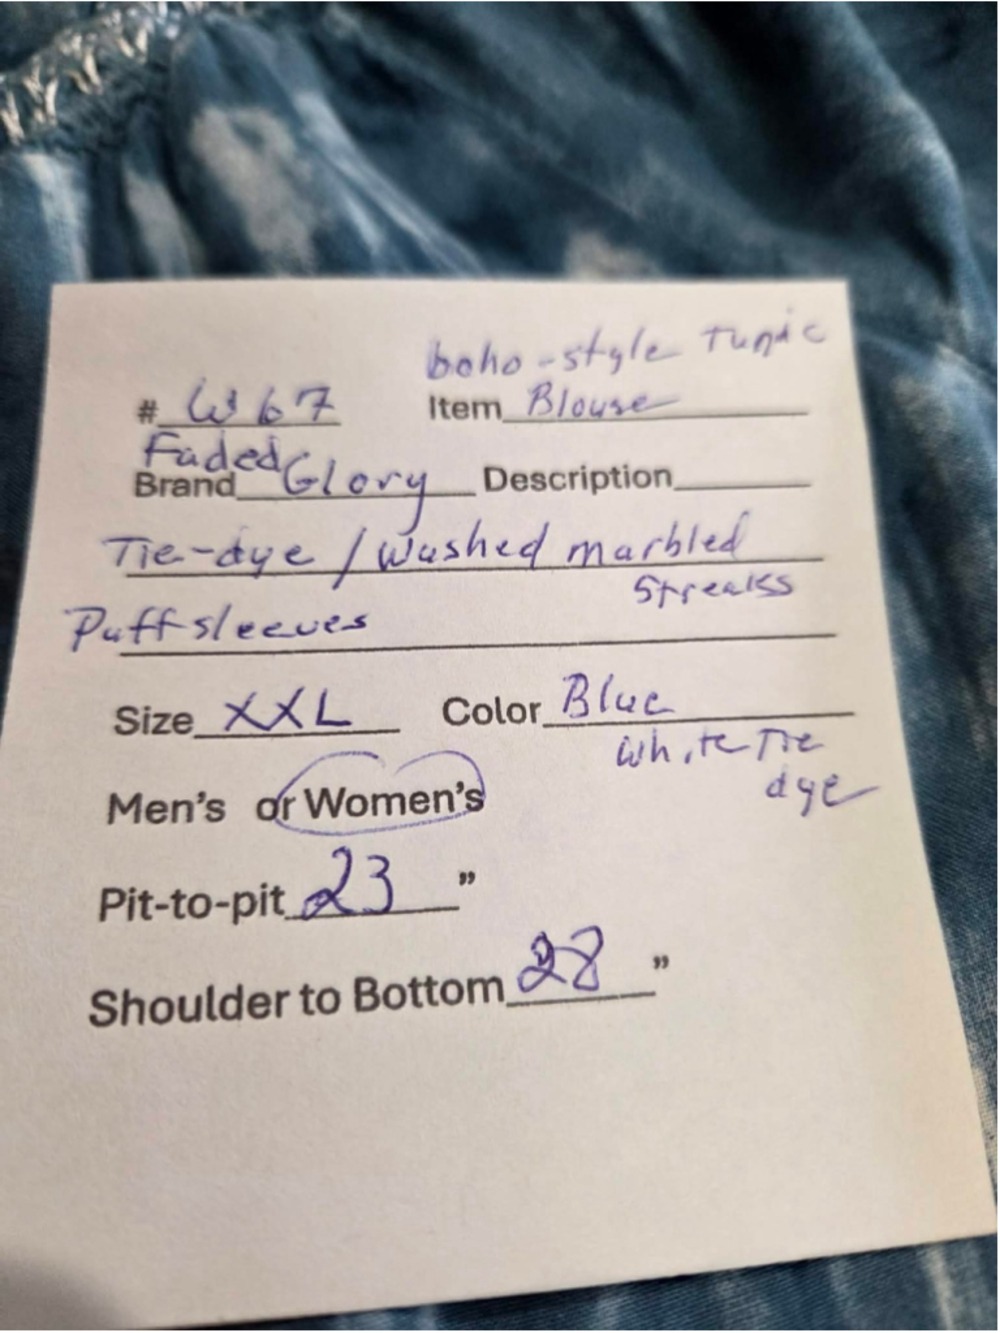 boho-style Tunic
# W67 Item Blouse
Faded
Brand Glory Description
Tie-dye / Washed marbled
Streaks
Puff sleeves
Size XXL Color Blue
White Tie
dye
Men's or Women's
Pit-to-pit 23 "
Shoulder to Bottom 28 "